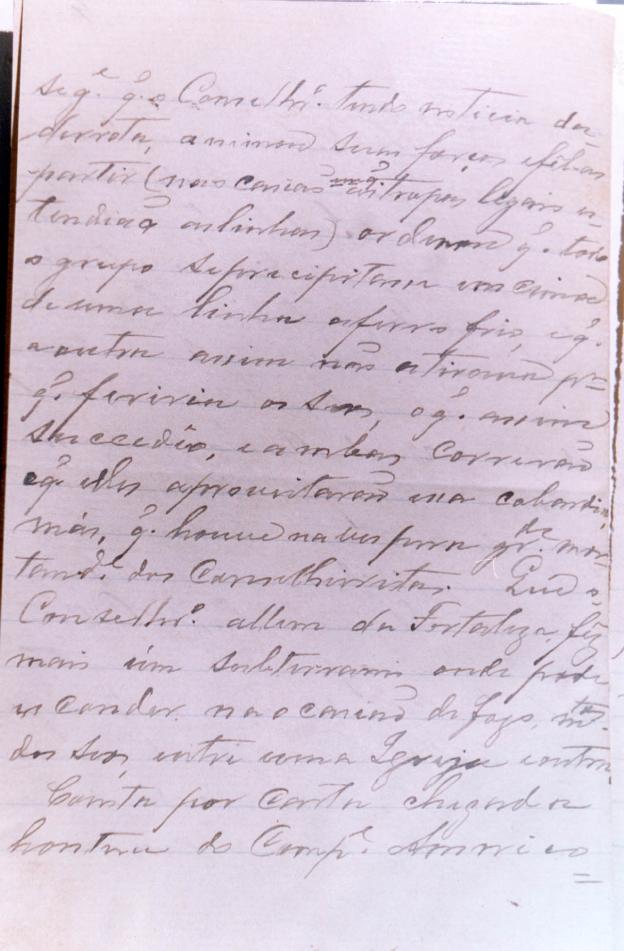 seg.e q. o Conselhr.o tendo noticia da
derrota, animou suas forças e fel-as
partir (nas casas as tropas legais es-
tendião as linhas) ordenou q. todo
o grupo se precipitasse em cima
de uma linha a ferro frio, e q.
a outra assim não atirava p.r
q. feriria os seus, o q. assim
succedêo, e ambas correrão
e q. elles aproveitarão essa cobardia,
más, q. houve na vespera gr.de mor-
tand.e dos Conselheiristas. Que o
Conselhr.o allem da Fortaleza, fez
mais úm subterraneo onde pode
esconder na ocasião do fogo, m.tos
dos seos, entre uma Igreja e outra.
Consta por carta chegada
hontem do Comp.e Americo